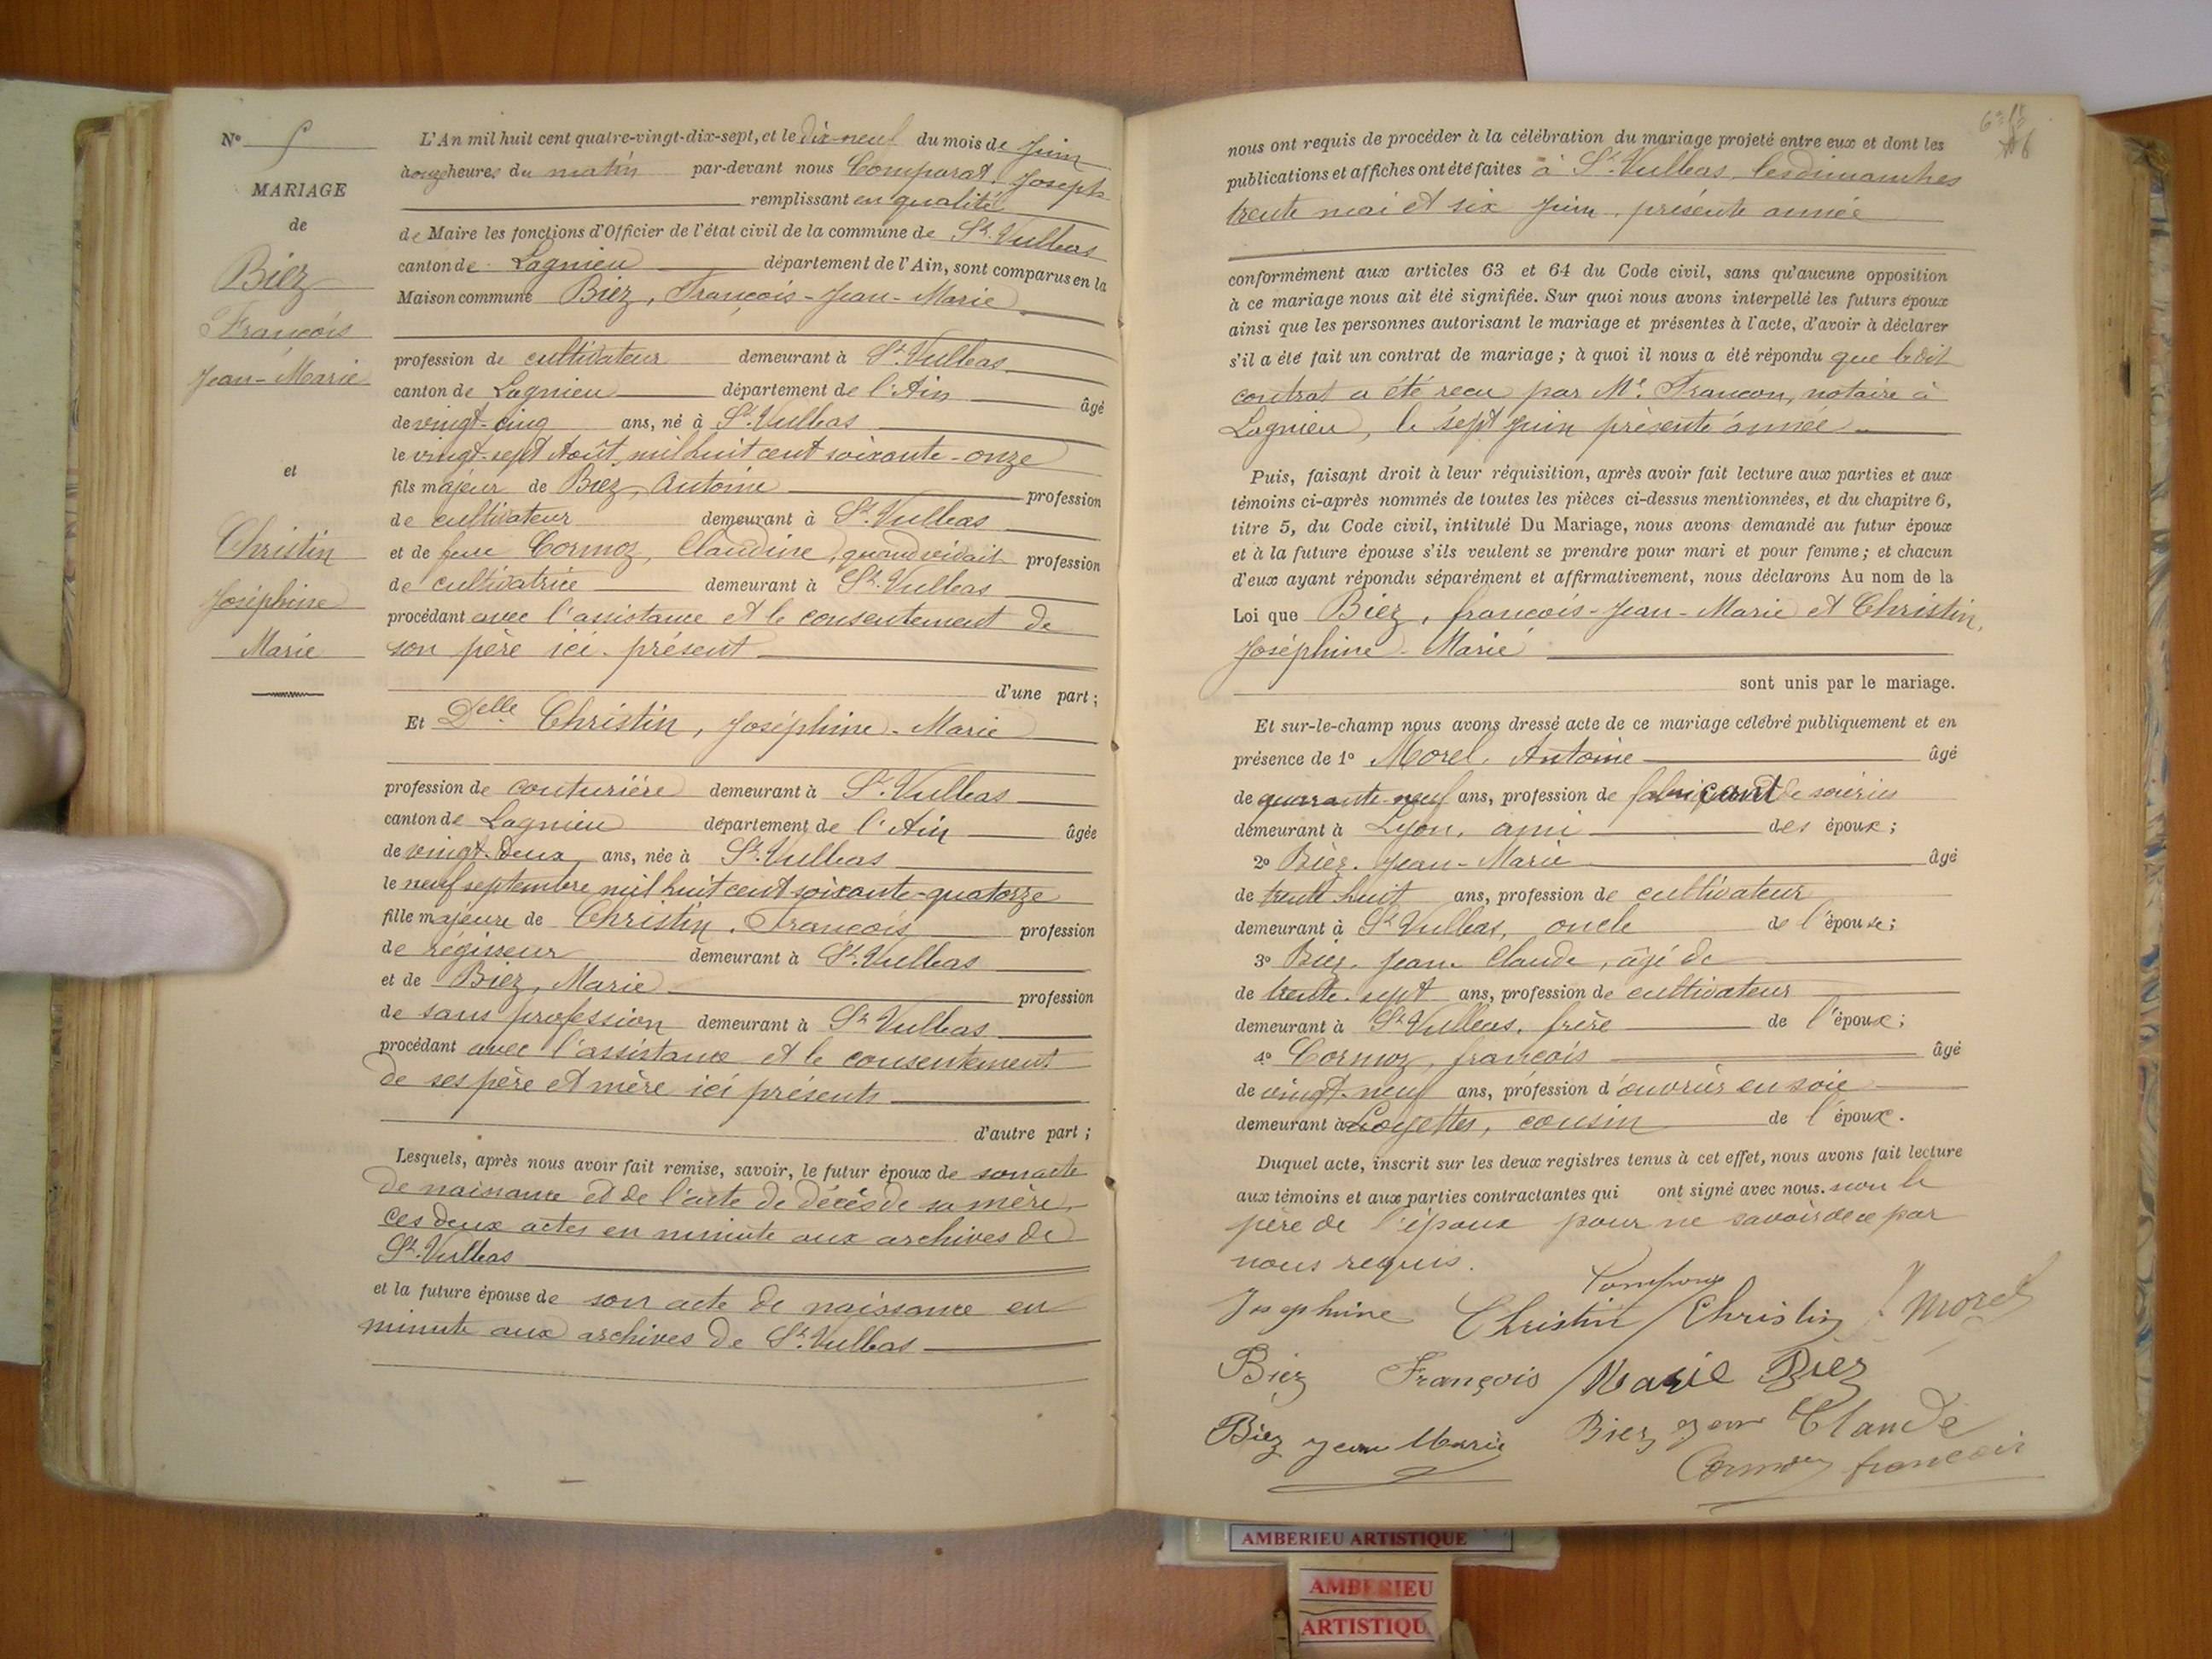 N° 5
MARIAGE
de
Biez
François
Jean-Marie
et
Christin
Joséphine
Marie
L'An mil huit cent quatre-vingt-dix-sept, et le dix-neuf du mois de Juin
à onze heures du matin par-devant nous Comparat, Joseph
remplissant en qualité
de Maire les fonctions d'Officier de l'état civil de la commune de St. Vulbas
canton de Lagnieu département de l'Ain, sont comparus en la
Maison commune Biez, François-Jean-Marie
profession de cultivateur demeurant à St. Vulbas
canton de Lagnieu département de l'Ain âgé
de vingt-cinq ans, né à St. Vulbas
le vingt-sept Août mil huit cent soixante-onze
fils majeur de Biez, Antoine profession
de cultivateur demeurant à St. Vulbas
et de feue Cormoz, Claudine, quand vivait profession
de cultivatrice demeurant à St. Vulbas
procédant avec l'assistance et le consentement de
son père ici présent
d'une part ;
Et Delle Christin, Joséphine-Marie
profession de couturière demeurant à St. Vulbas
canton de Lagnieu département de l'Ain âgée
de vingt-deux ans, née à St. Vulbas
le neuf septembre mil huit cent soixante-quatorze
fille majeure de Christin, François profession
de régisseur demeurant à St. Vulbas
et de Biez, Marie profession
de sans profession demeurant à St. Vulbas
procédant avec l'assistance et le consentement
de ses père et mère ici présents
d'autre part ;
Lesquels, après nous avoir fait remise, savoir, le futur époux de son acte
de naissance et de l'acte de décès de sa mère,
ces deux actes en minute aux archives de
St. Vulbas
et la future épouse de son acte de naissance en
minute aux archives de St. Vulbas
nous ont requis de procéder à la célébration du mariage projeté entre eux et dont les
publications et affiches ont été faites à St. Vulbas, les dimanches
trente mai et six Juin, présente année
conformément aux articles 63 et 64 du Code civil, sans qu'aucune opposition
à ce mariage nous ait été signifiée. Sur quoi nous avons interpellé les futurs époux
ainsi que les personnes autorisant le mariage et présentes à l'acte, d'avoir à déclarer
s'il a été fait un contrat de mariage ; à quoi il nous a été répondu que ledit
contrat a été reçu par Me. Francon, notaire à
Lagnieu, le sept juin présente année
Puis, faisant droit à leur réquisition, après avoir fait lecture aux parties et aux
témoins ci-après nommés de toutes les pièces ci-dessus mentionnées, et du chapitre 6,
titre 5, du Code civil, intitulé Du Mariage, nous avons demandé au futur époux
et à la future épouse s'ils veulent se prendre pour mari et pour femme ; et chacun
d'eux ayant répondu séparément et affirmativement, nous déclarons Au nom de la
Loi que Biez, françois-Jean-Marie et Christin,
Joséphine-Marie
sont unis par le mariage.
Et sur-le-champ nous avons dressé acte de ce mariage célébré publiquement et en
présence de 1° Morel, Antoine âgé
de quarante-neuf ans, profession de fabricant de soieries
demeurant à Lyon, ami des époux ;
2° Biez, Jean-Marie âgé
de trente huit ans, profession de cultivateur
demeurant à St Vulbas, oncle de l'épouse ;
3° Biez, Jean Claude, âgé de
de trente-sept ans, profession de cultivateur
demeurant à St Vulbas, frère de l'époux ;
4° Cormoz, françois âgé
de vingt-neuf ans, profession d'ouvrier en soie
demeurant à Loyettes, cousin de l'époux.
Duquel acte, inscrit sur les deux registres tenus à cet effet, nous avons fait lecture
aux témoins et aux parties contractantes qui ont signé avec nous. non le
père de l'époux pour ne savoir de ce par
nous requis.
Josephine Christin Christin Morel
Biez François Marie Biez
Biez Jean Marie Biez Jean Claude
Cormoz françois
AMBERIEU ARTISTIQUE
AMBERIEU
ARTISTIQU